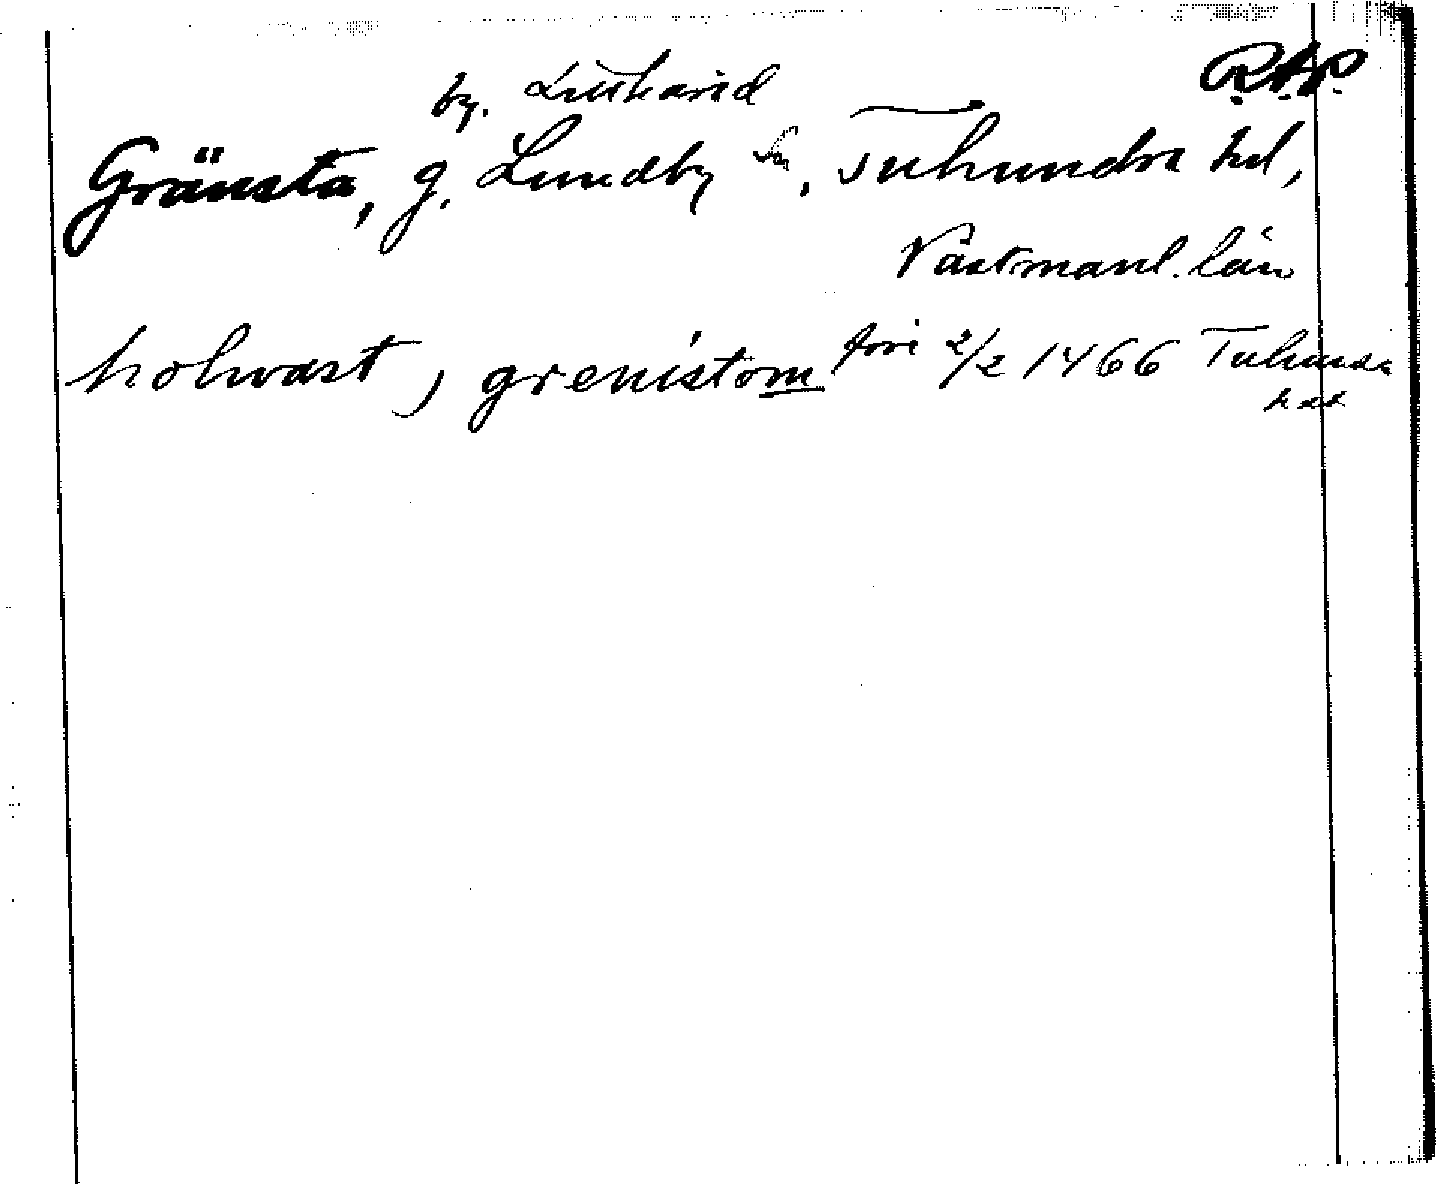 by. Lillhärad R.A.P.
Gränsta, g. Lundby sn, Tuhundra hd,
Västmanl. län
holvast, grenistom före 2/2 1466 Tuhundra
hd